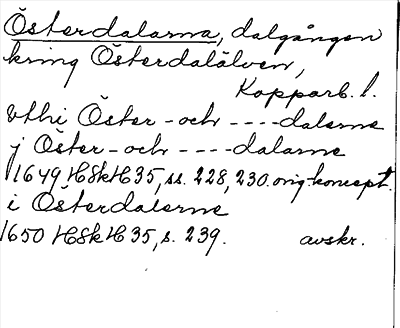 Österdalarna, dalgången
kring Österdalälven,
Kopparb. l.
vthi Öster - och ----dalerne
j Öster - och ----dalarne
1649 HSkH 35, ss. 228, 230. orig. koncept.
i Österdalerne
1650 HSkH 35, s. 239. avskr.